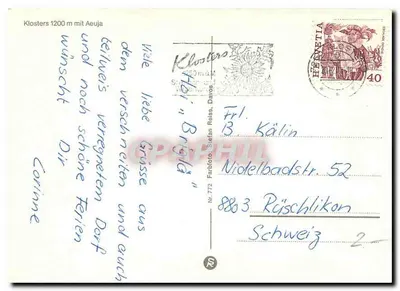 Klosters 1200 m mit Aeuja
Hoi "Brigä"
Viele liebe Grüsse aus
dem verschneiten und auch
teilweis verregnetem Dorf
und noch schöne Ferien
wünscht Dir
Corinne
Nr. 773 Farbfoto Stefan Reiss, Davos
Klosters
HELVETIA
40
Frl.
B. Kälin
Nidelbadstr. 52
8803 Rüschlikon
Schweiz
2.-